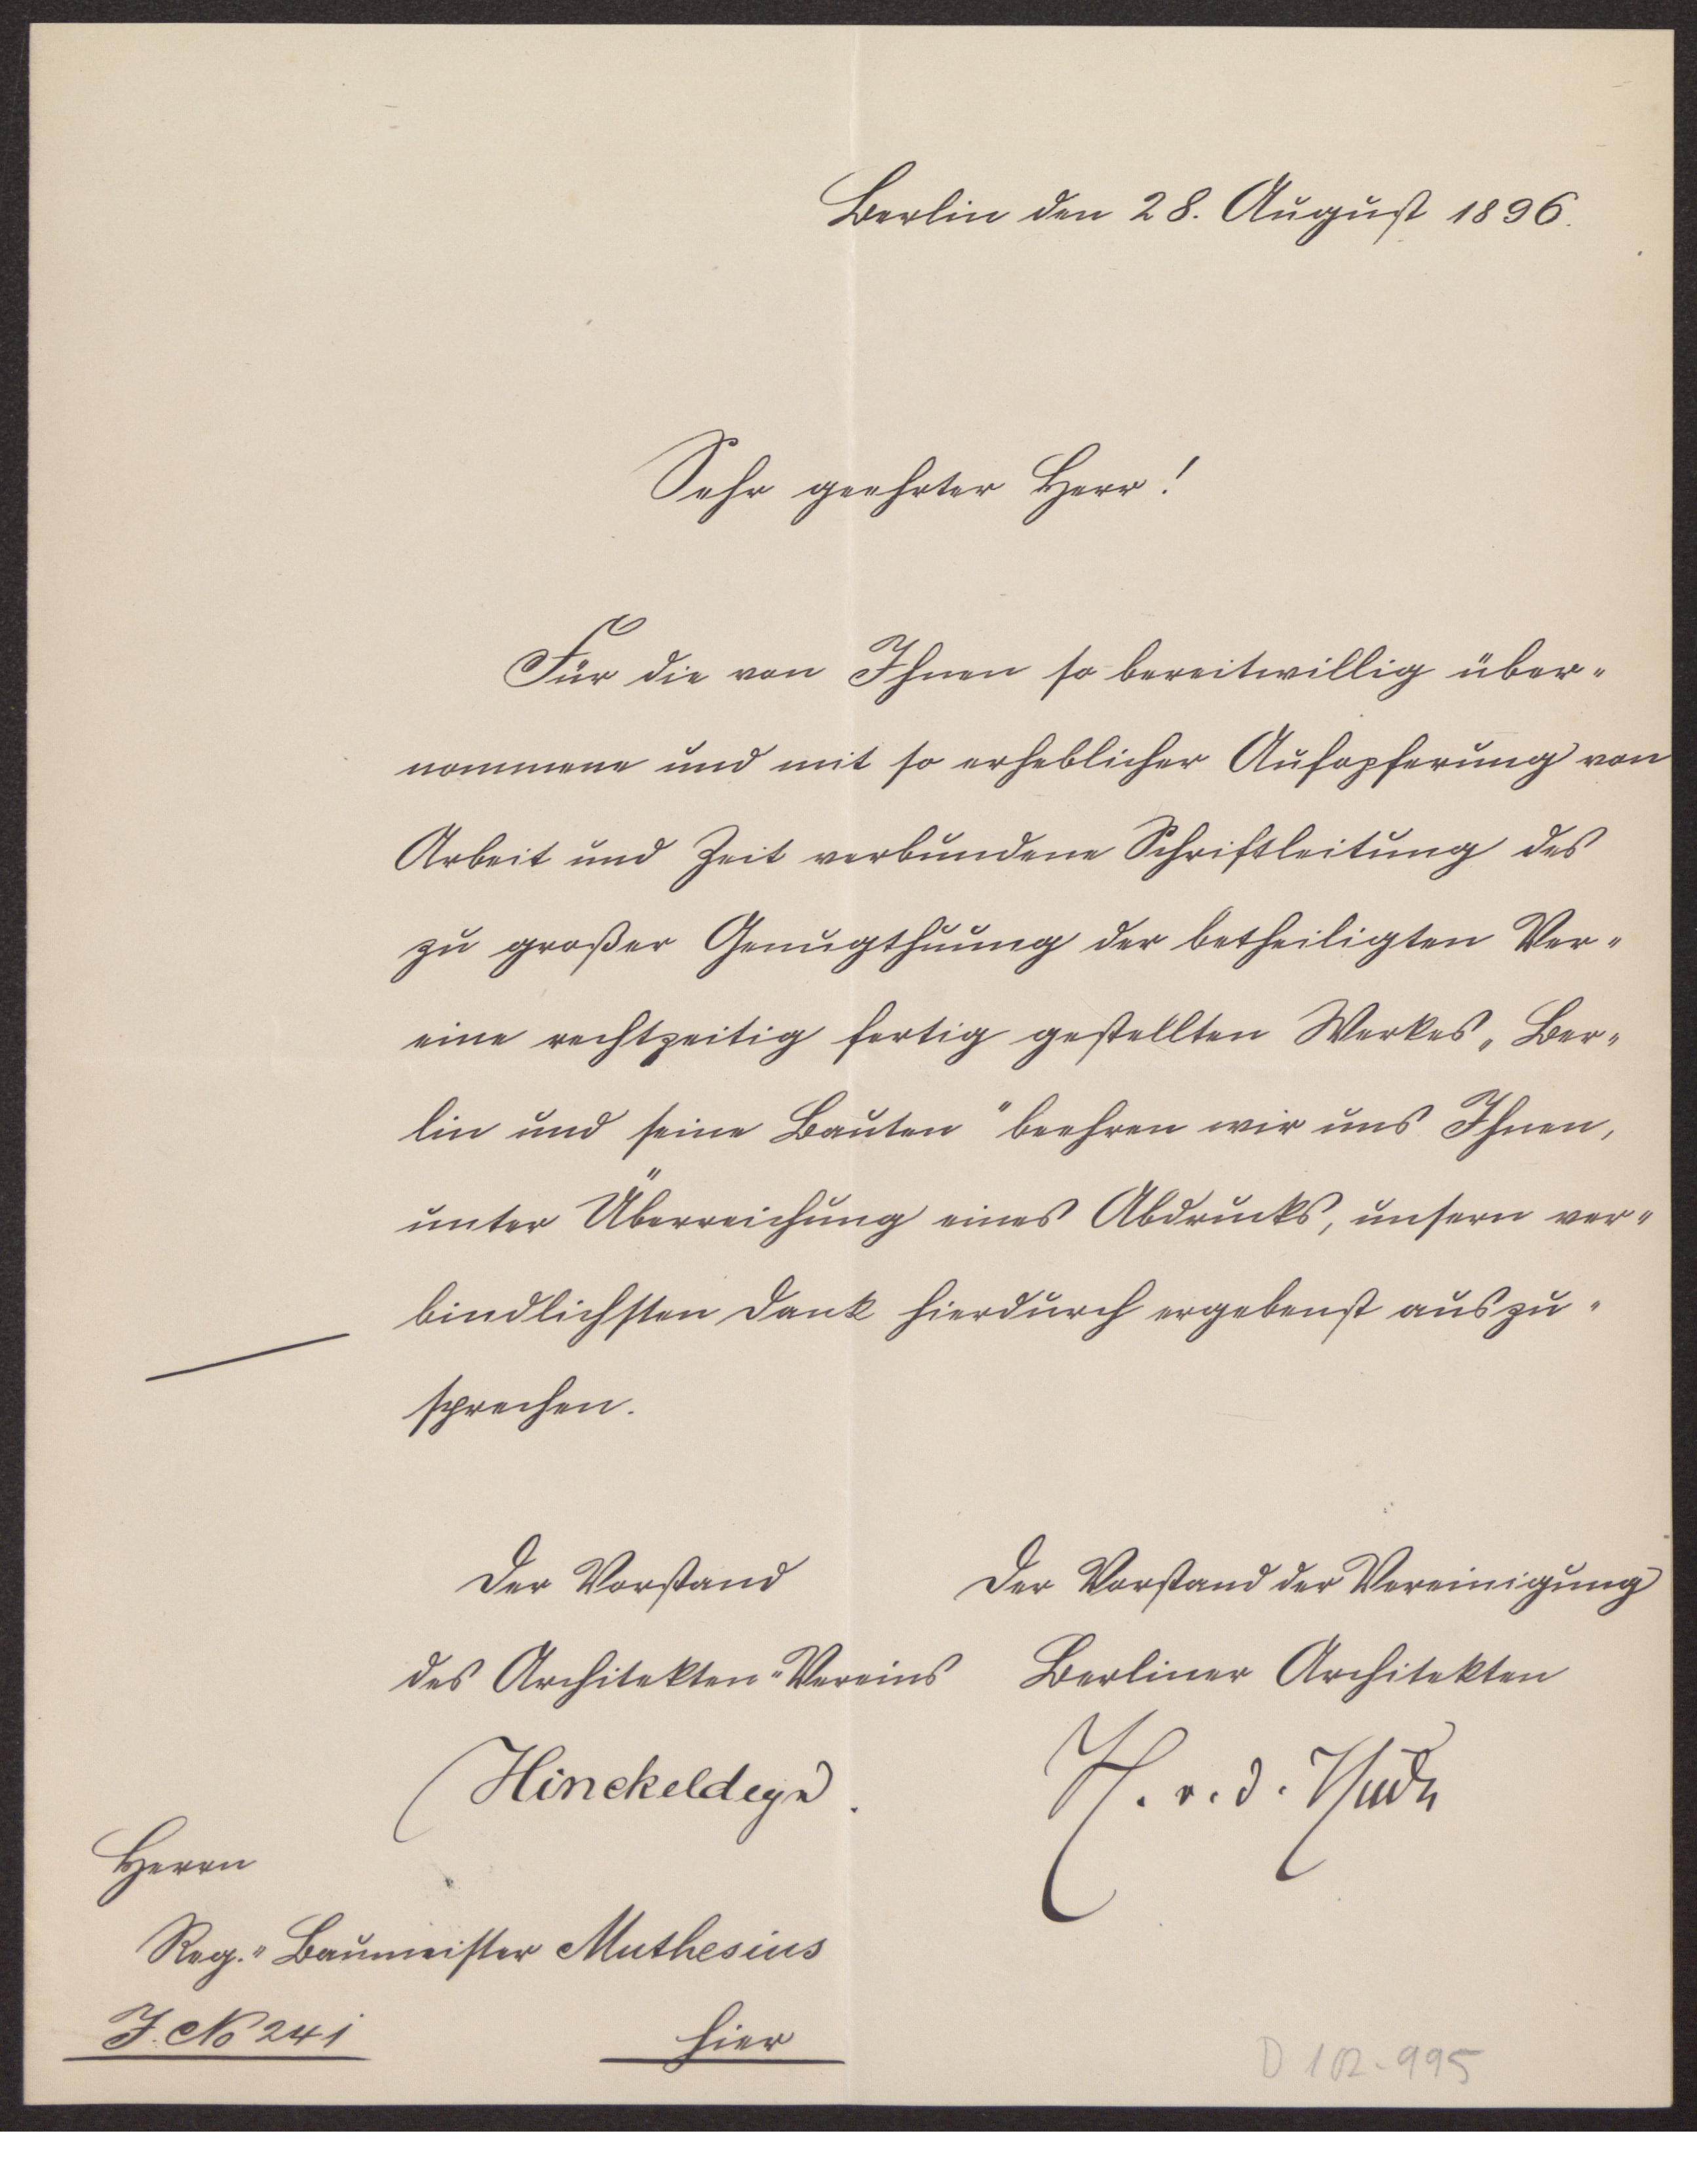 Berlin den 28. August 1896.
Sehr geehrter Herr!
Für die von Ihnen so bereitwillig über-
nommene und mit so erheblicher Aufopferung von
Arbeit und Zeit verbundene Schriftleitung des
zu großer Genugthuung der betheiligten Ver-
eine rechtzeitig fertig gestellten Werkes „Ber-
lin und seine Bauten“ beehren wir uns Ihnen,
unter Überreichung eines Abdrucks, unsern ver-
bindlichsten Dank hierdurch ergebenst auszu-
sprechen.
Der Vorstand
des Architekten-Vereins
Hinckeldeyn.
Der Vorstand der Vereinigung
Berliner Architekten
H. v. d. Hude
Herrn
Reg.-Baumeister Muthesius
J. No 241
hier
D 102-995